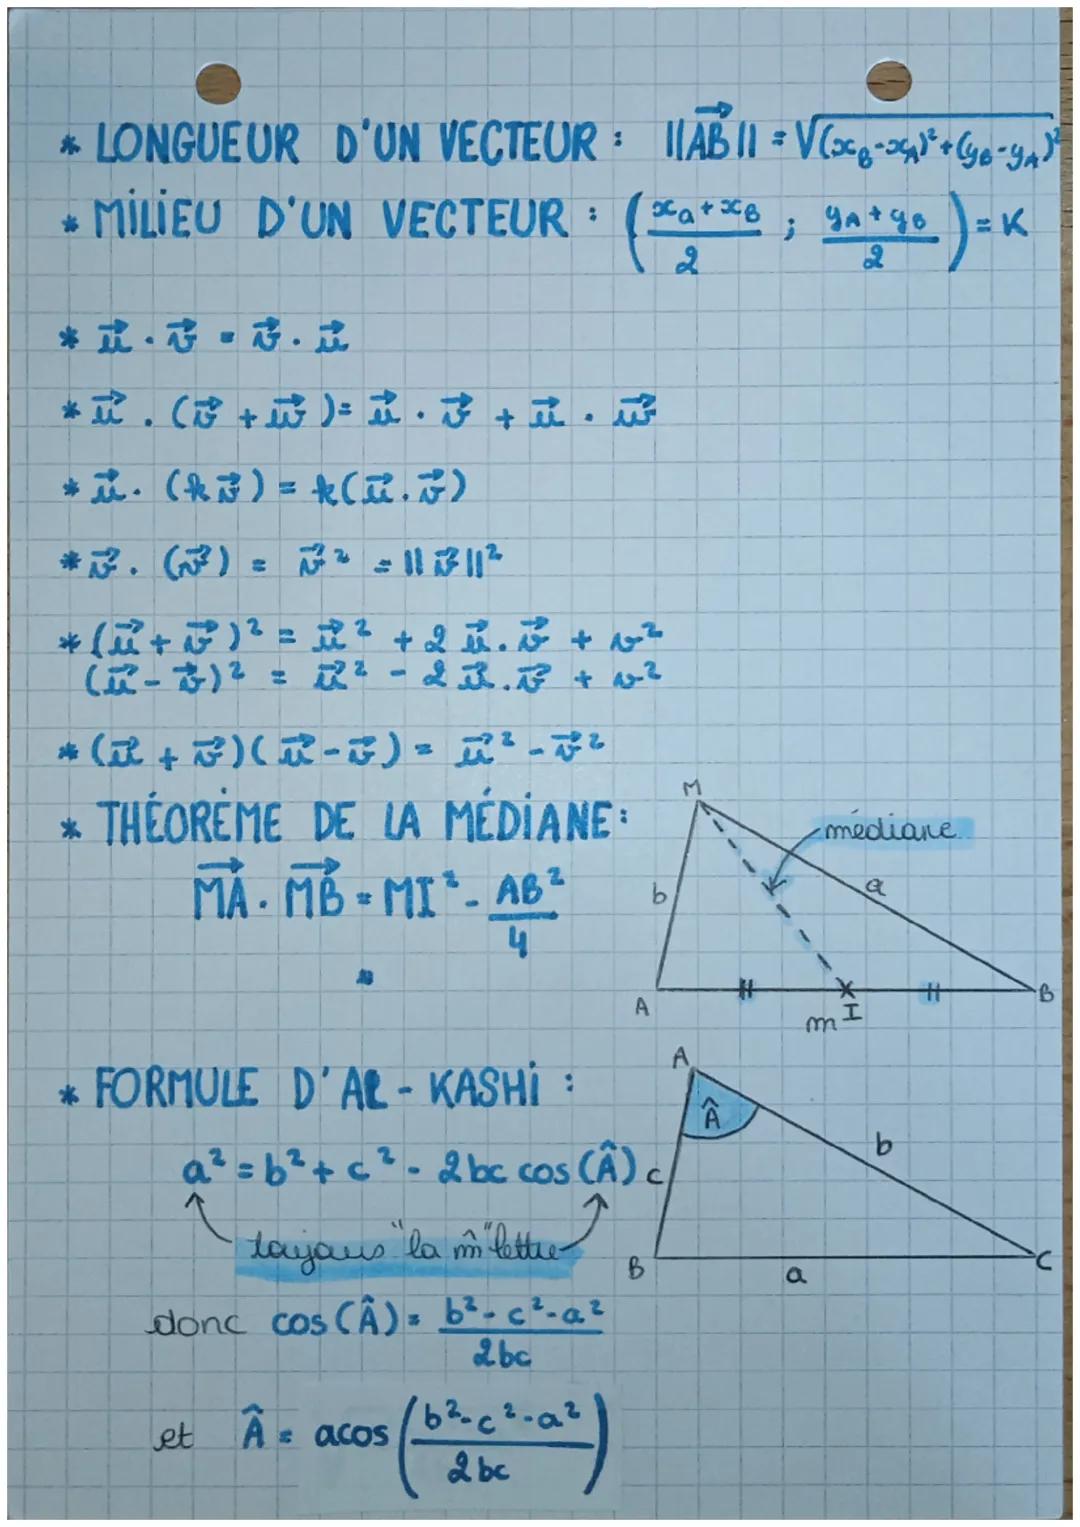 * LONGUEUR D'UN VECTEUR : ||AB→|| = √(x_B-x_A)²+(y_B-y_A)²
* MILIEU D'UN VECTEUR : ( x_a+x_B / 2 ; y_A+y_B / 2 ) = K
* u→ . v→ = v→ . u→
* u→ . (v→ + w→) = u→ . v→ + u→ . w→
* u→ . (k v→) = k(u→ . v→)
* v→ . (v→) = v→² = ||v→||²
* (u→ + v→)² = u→² + 2 u→ . v→ + v²
(u→ - v→)² = u→² - 2 u→ . v→ + v²
* (u→ + v→)(u→ - v→) = u→² - v→²
* THÉORÈME DE LA MÉDIANE :
MA→ . MB→ = MI² - AB² / 4
M
médiane
b
a
A
I
B
m
* FORMULE D'AL-KASHI :
a² = b² + c² - 2bc cos(Â)
toujours "la m̂" lettre
A
Â
b
c
B
a
C
donc cos(Â) = b²-c²-a² / 2bc
et Â = acos ( b²-c²-a² / 2bc )